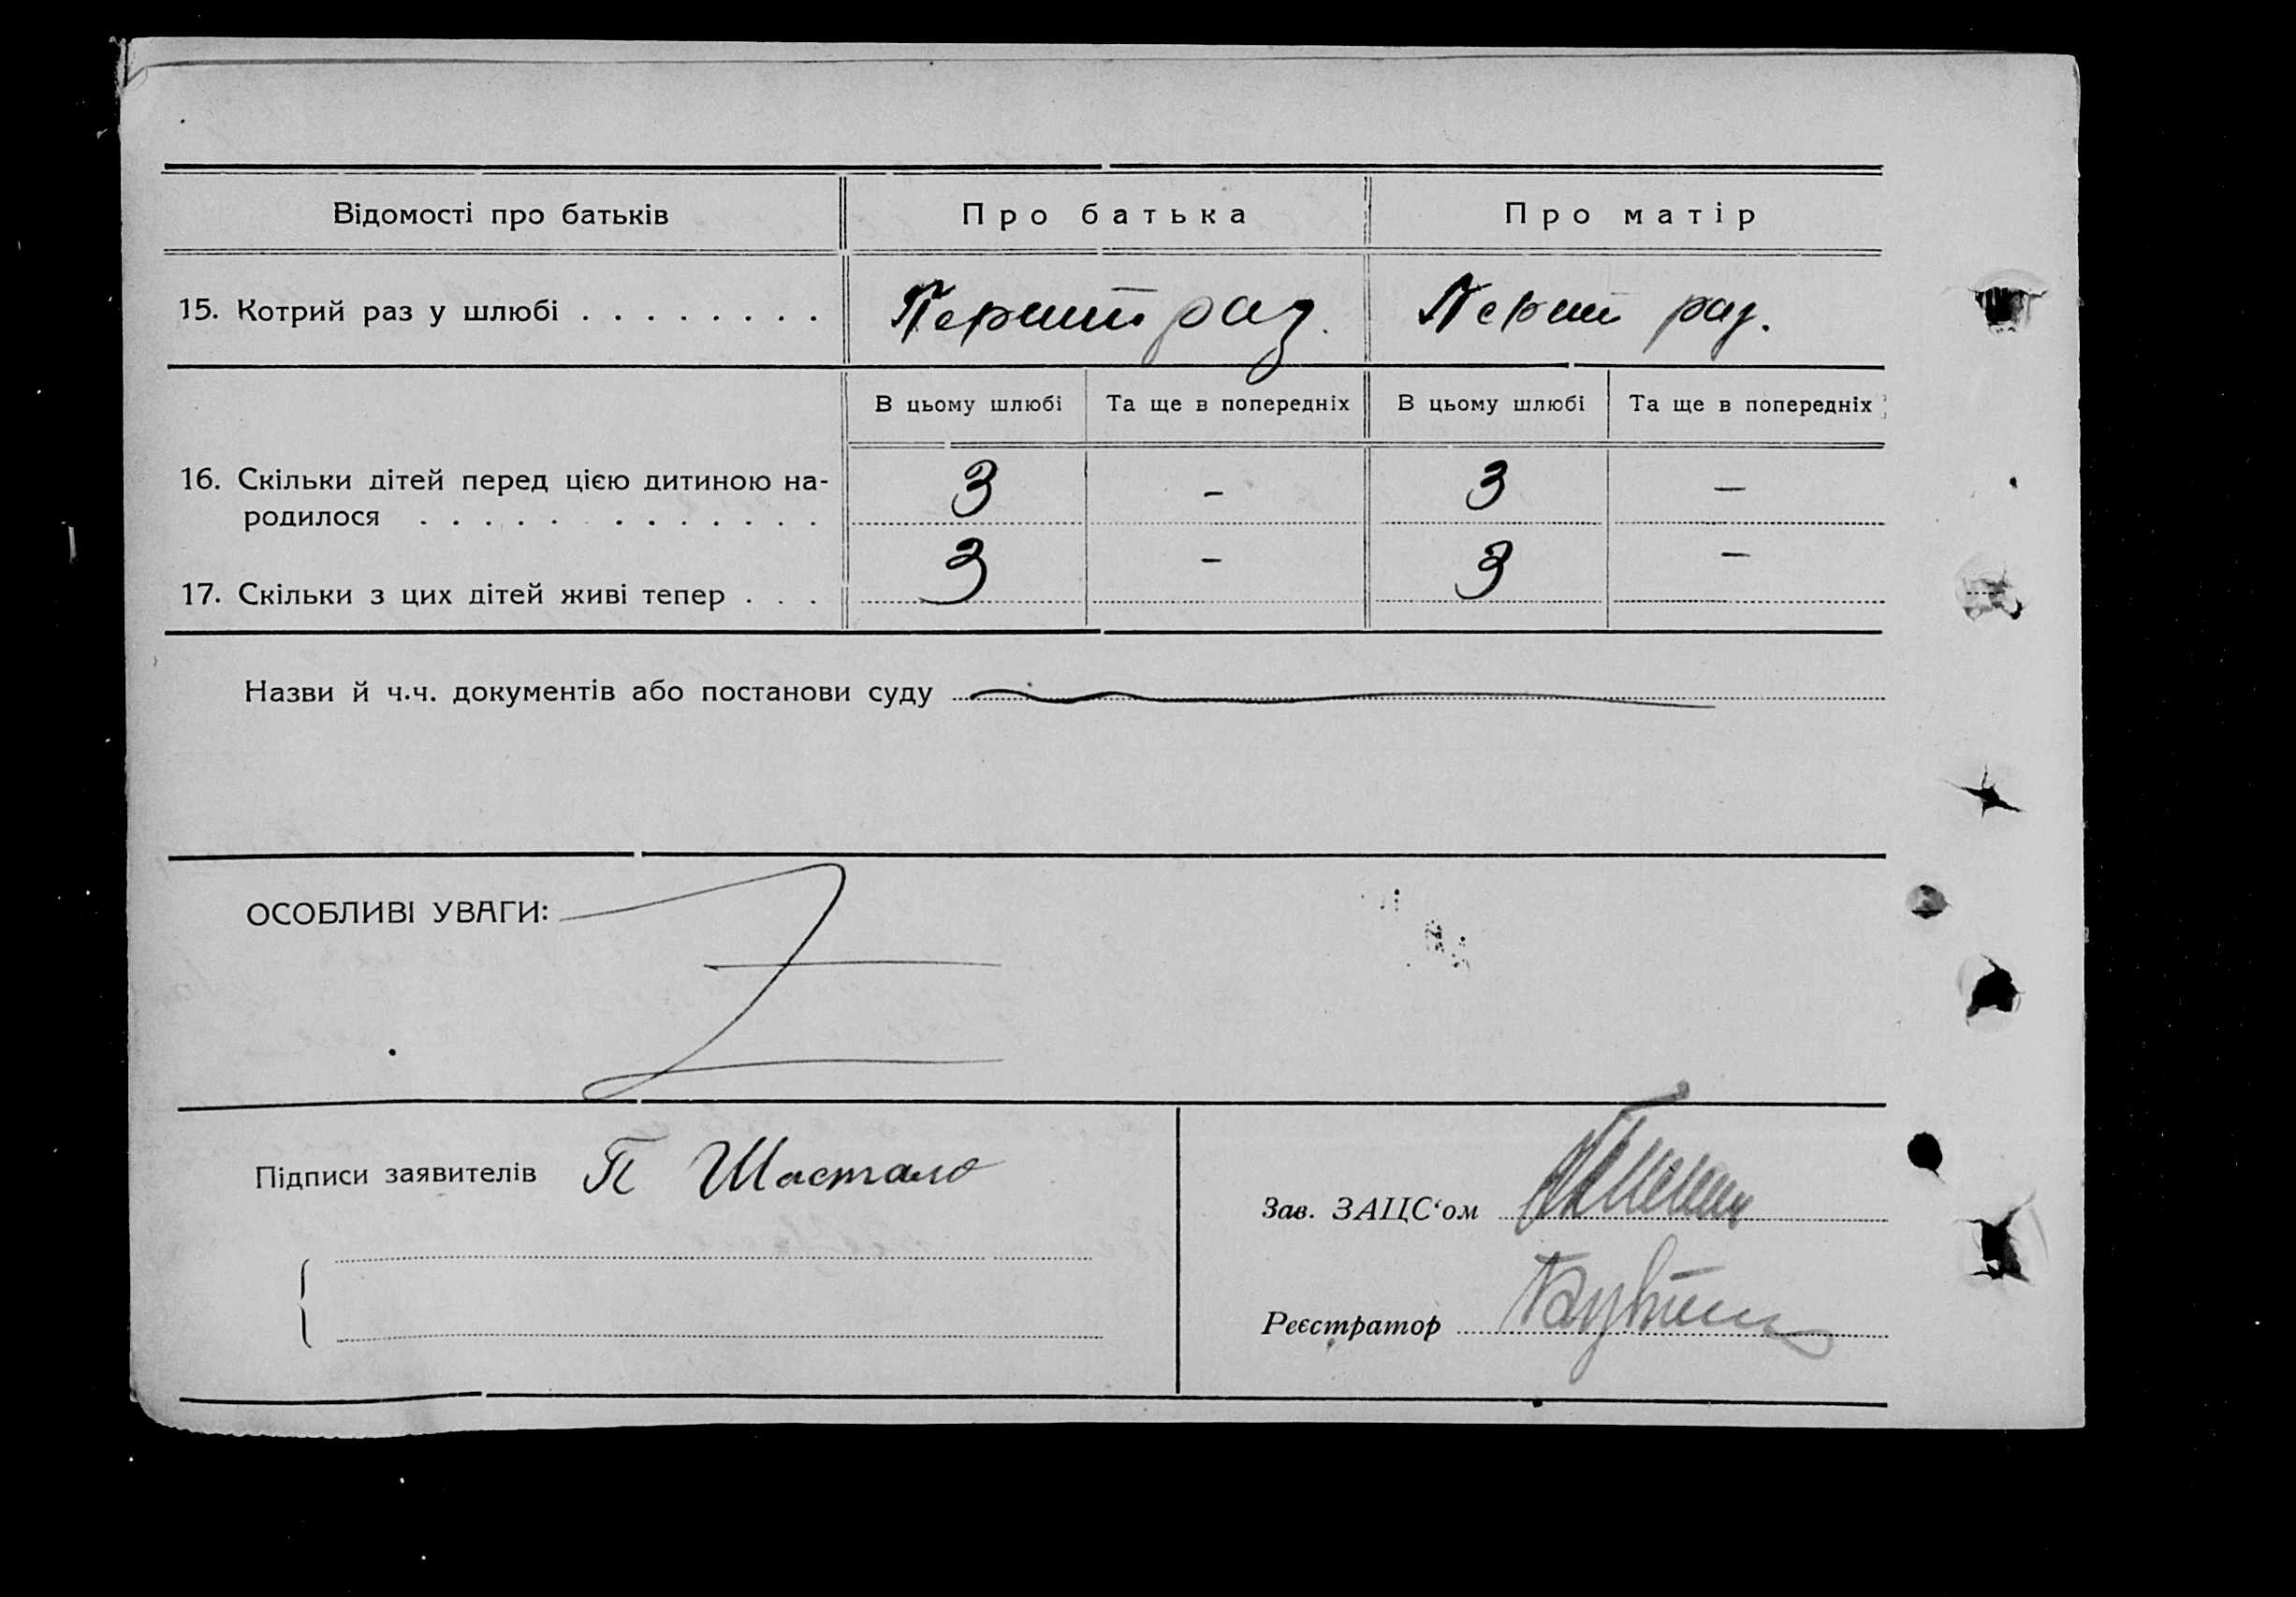 Відомості про батьків Про батька Про матір
15. Котрий раз у шлюбі . . . . . . . . Перший раз. Перший раз.
В цьому шлюбі Та ще в попередніх В цьому шлюбі Та ще в попередніх
16. Скільки дітей перед цією дитиною на- 3 - 3 —
родилося . . . . . . . . . . . . .
17. Скільки з цих дітей живі тепер . . . 3 - 3 —
Назви й ч.ч. документів або постанови суду
ОСОБЛИВІ УВАГИ:
Підписи заявителів П Шастало
Зав. ЗАЦС‘ом
Реєстратор